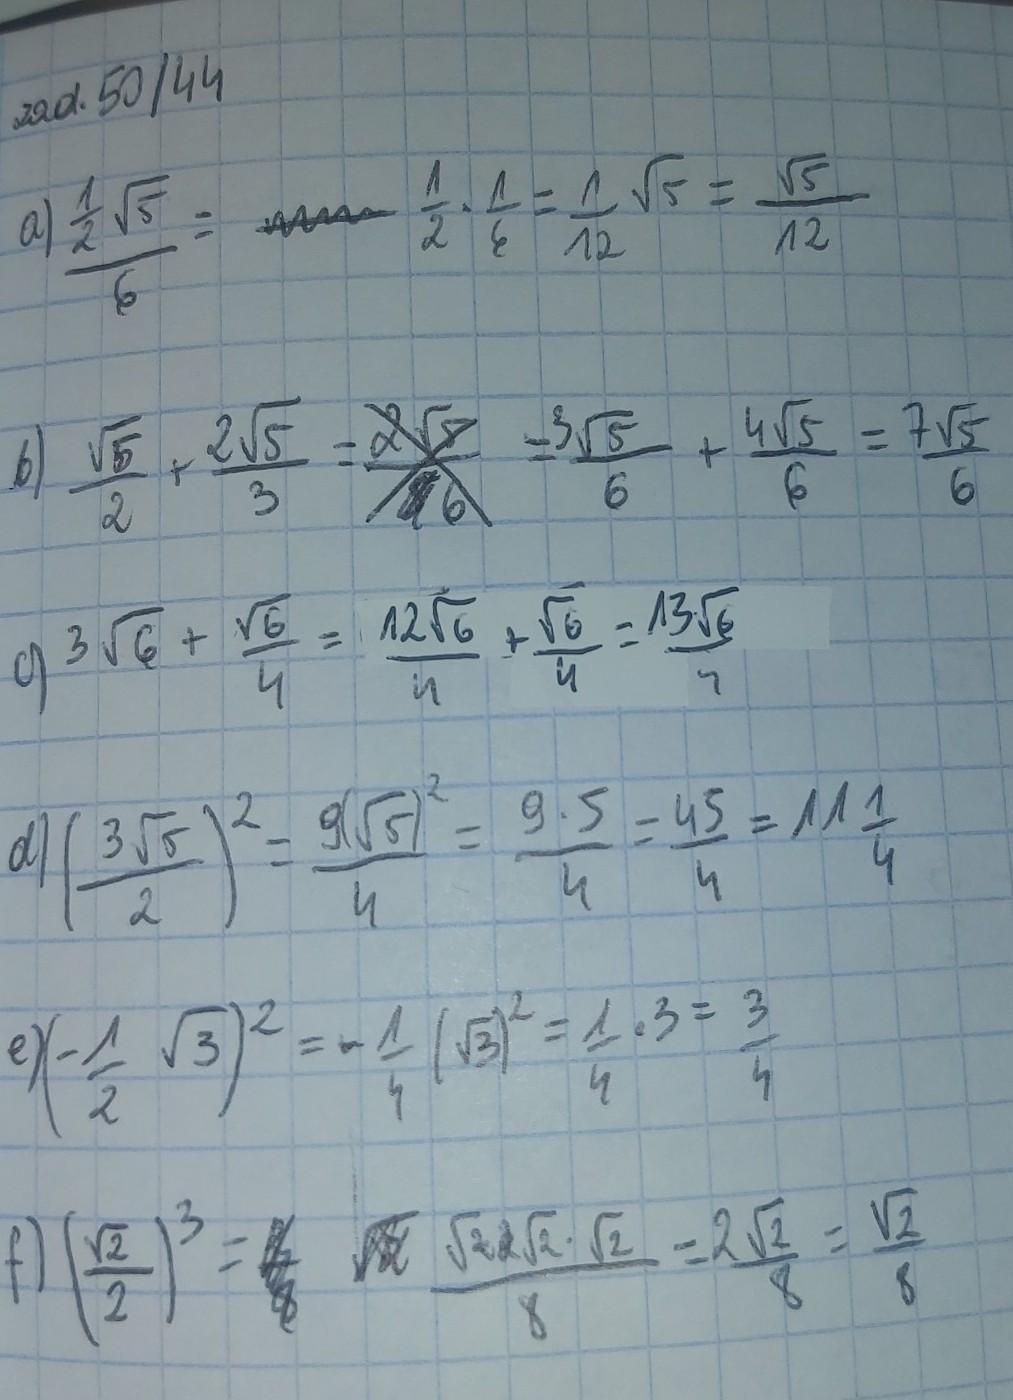 zad. 50/44
a) (1/2 √5)/6 = 1/2 · 1/6 = 1/12 √5 = √5/12
b) √5/2 + 2√5/3 = 3√5/6 + 4√5/6 = 7√5/6
c) 3√6 + √6/4 = 12√6/4 + √6/4 = 13√6/4
d) (3√5/2)² = 9(√5)²/4 = 9·5/4 = 45/4 = 11 1/4
e) (-1/2 √3)² = -1/4 (√3)² = 1/4 · 3 = 3/4
f) (√2/2)³ = √2·√2·√2/8 = 2√2/8 = √2/8